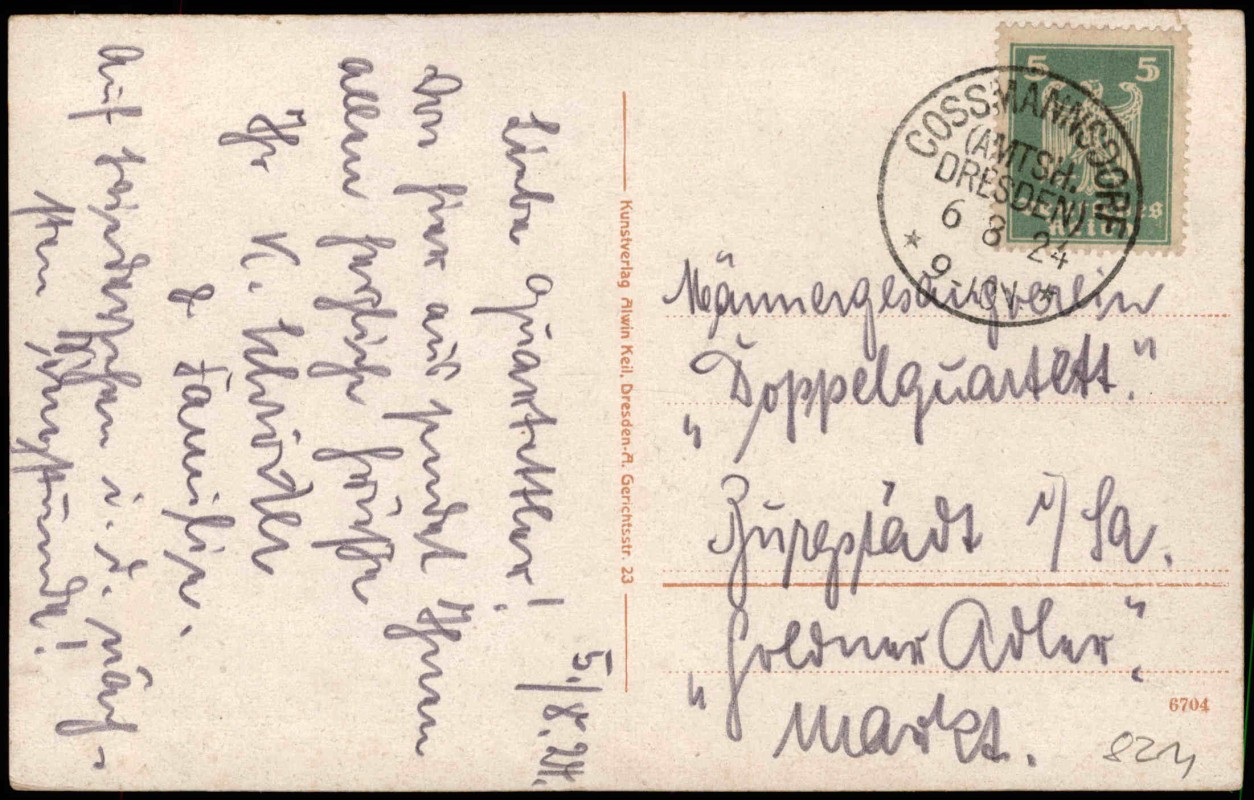 5./8.24.
Liebe Quartettler!
Von hier aus sendet Ihnen
allen herzliche Grüße
Ihr K.
& Familie.
Auf Wiedersehen i. d. näch-
sten Singstunde!
Kunstverlag Alwin Keil, Dresden-A. Gerichtsstr. 23
5 5
Deutsches
Reich
COSSMANNSDORF
(AMTSH.
DRESDEN)
6 8 24
* 9-10V. *
Männergesangverein
„Doppelquartett."
Burgstädt i/Sa.
„Goldner Adler".
Markt.
6704